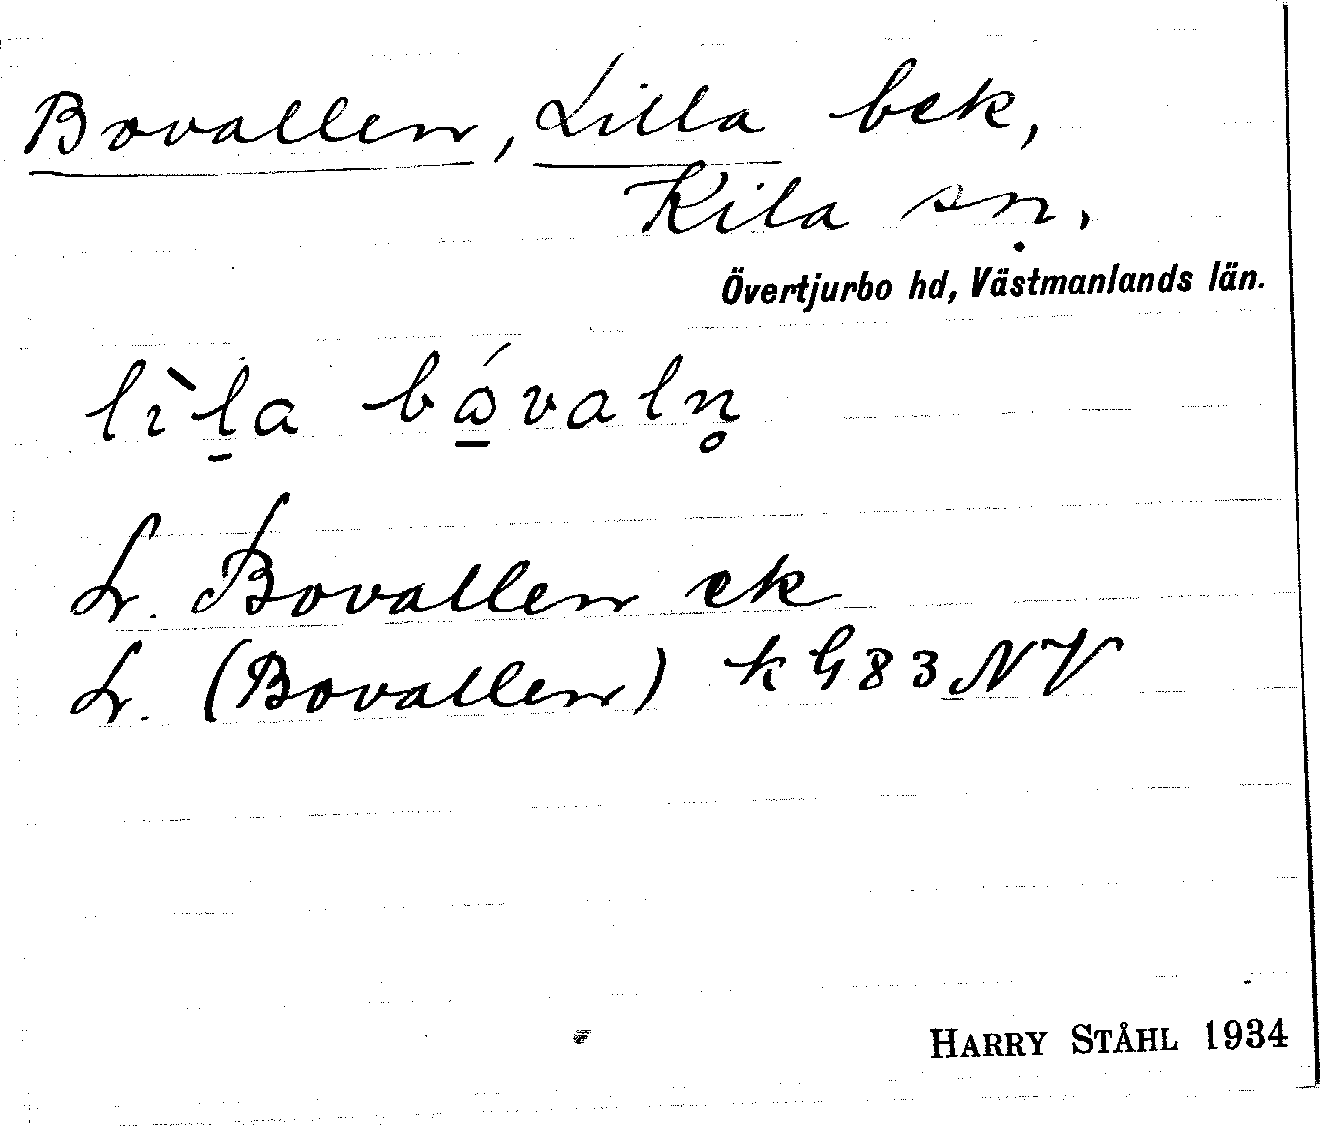 Bovallen, Lilla bek,
Kila sn.
Övertjurbo hd, Västmanlands län.
lìḻa bɷ̱́valn̥
L. Bovallen ek
L. (Bovallen) k G83 NV
HARRY STÅHL 1934